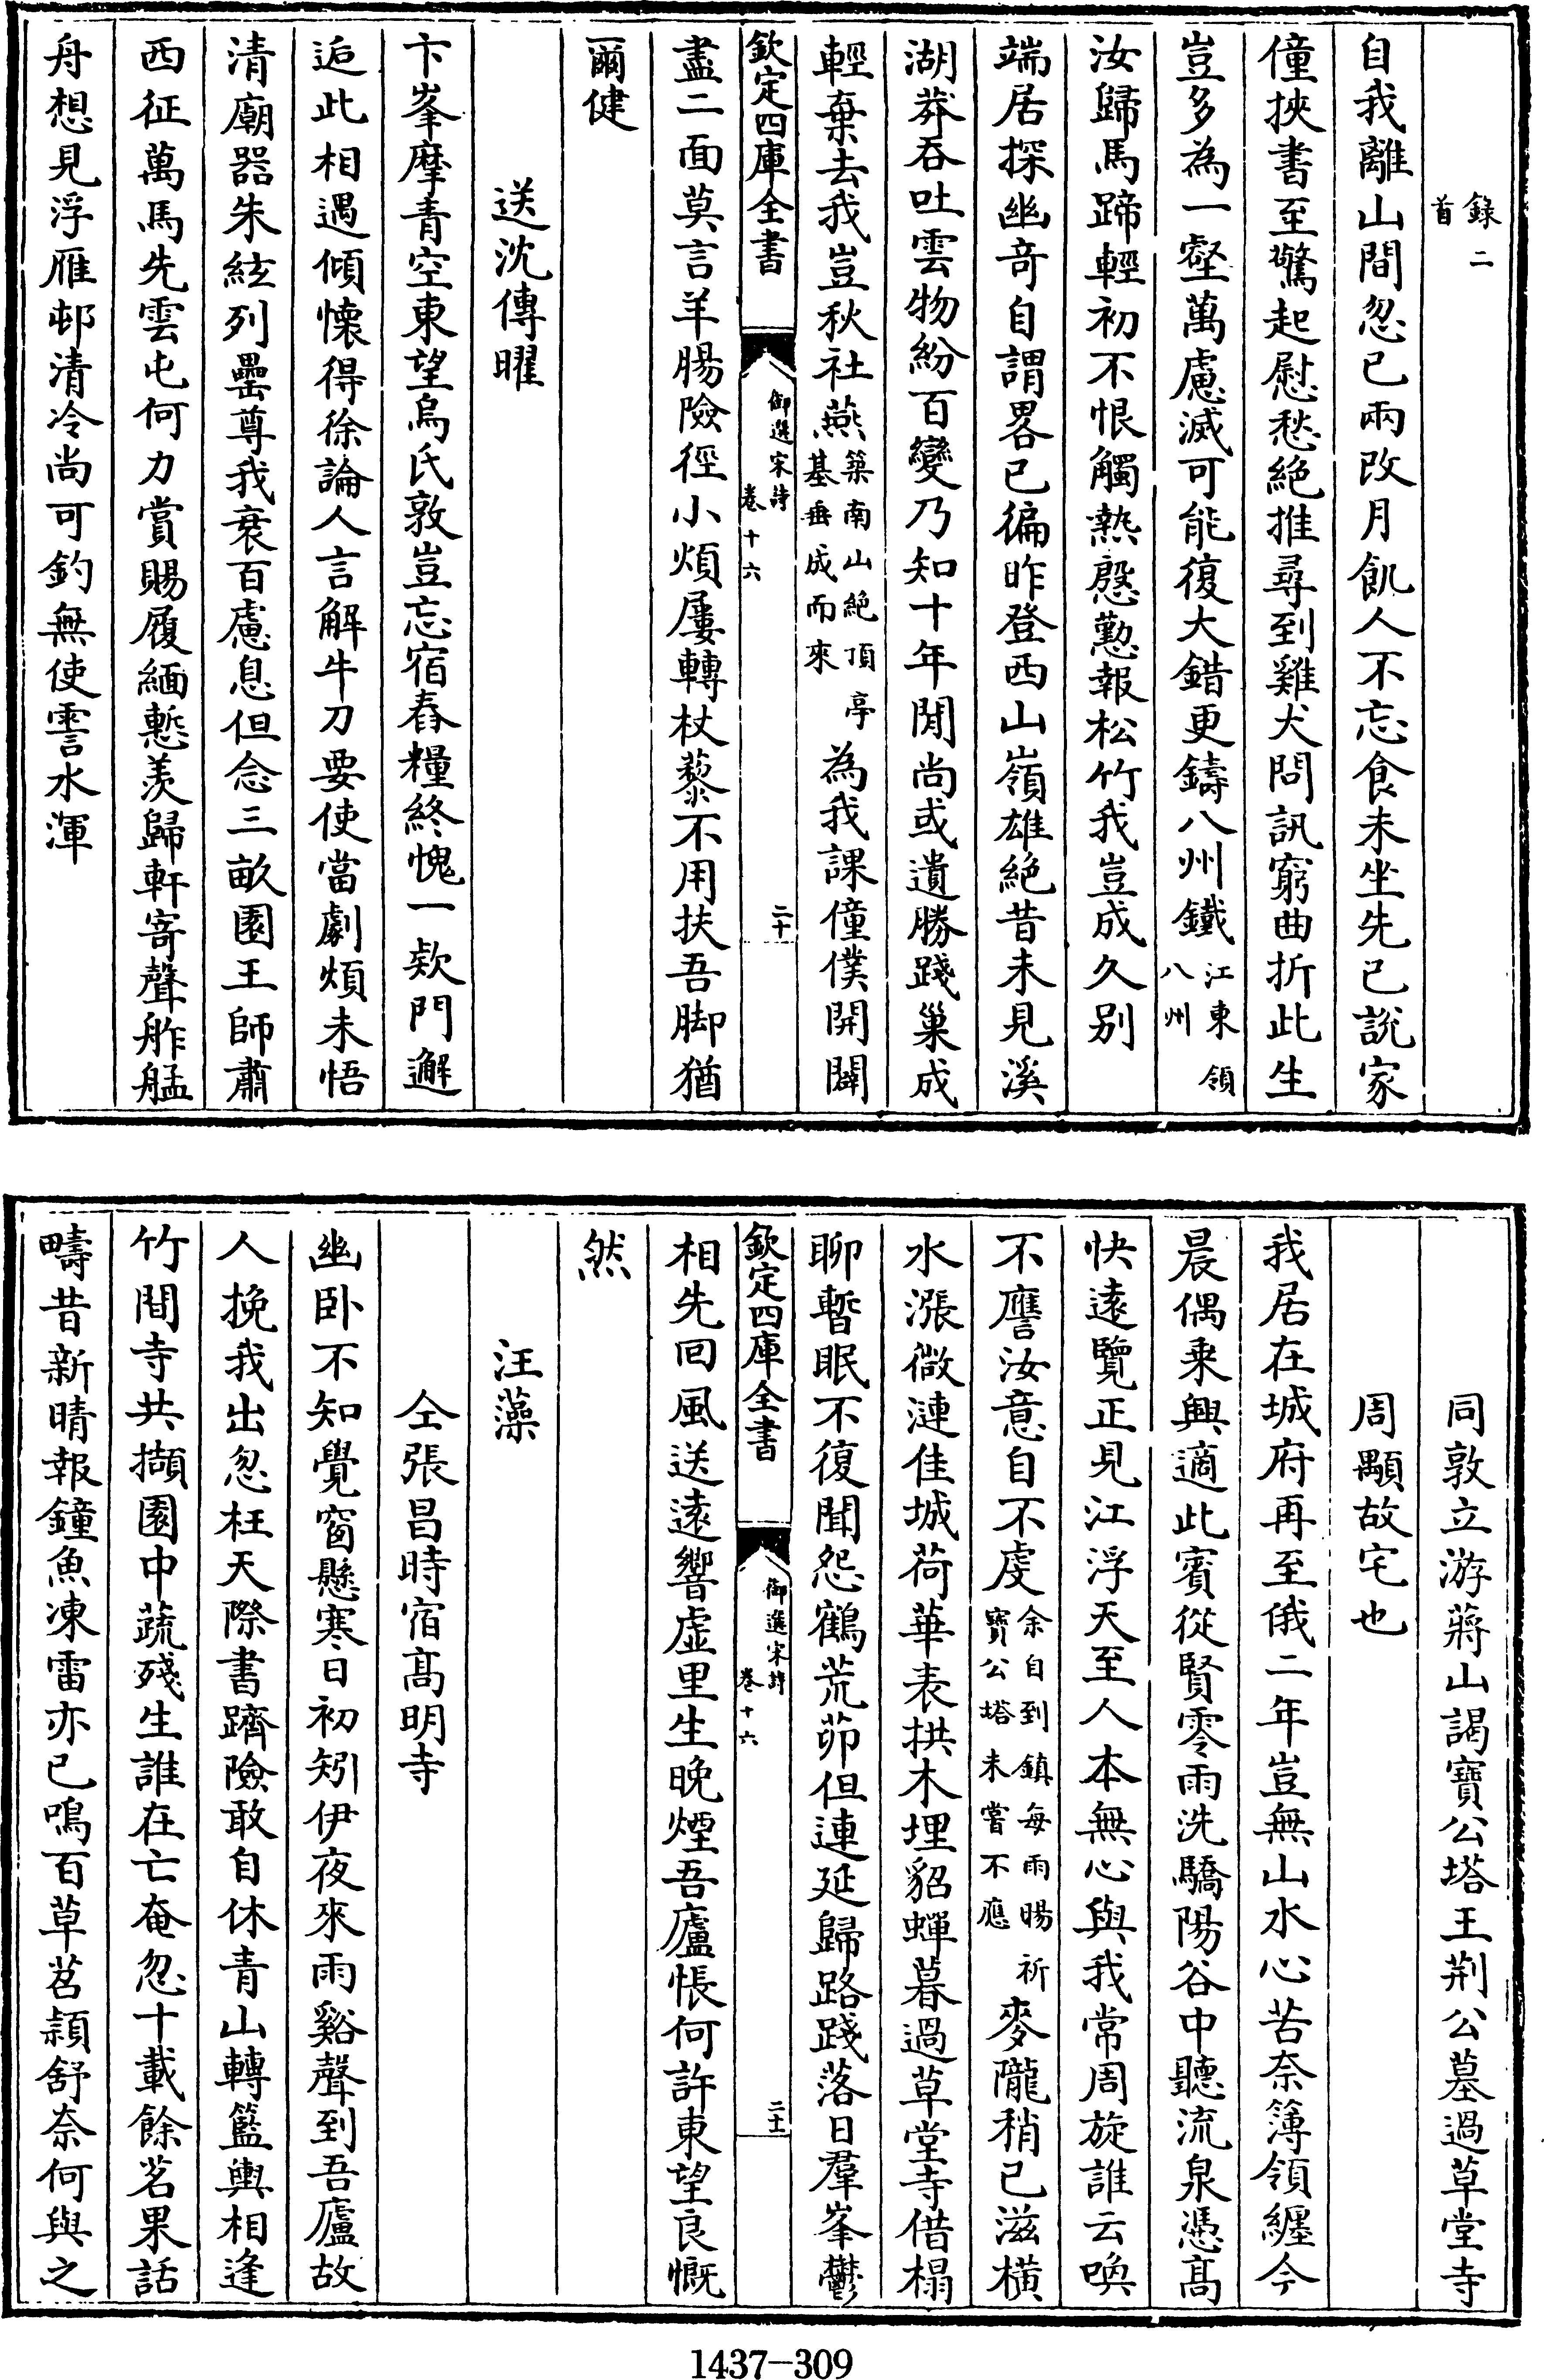 錄二
首
自我離山間忽已兩改月飢人不忘食未坐先已說家
僮挾書至驚起慰愁絕推尋到雞犬問訊窮曲折此生
豈多為一壑萬慮滅可能復大錯更鑄八州鐵江東領八州
汝歸馬蹄輕初不恨觸熱慇懃報松竹我豈成久别
端居探幽奇自謂畧已徧昨登西山嶺雄絕昔未見溪
湖莽吞吐雲物紛百變乃知十年閒尚或遺勝踐巢成
輕棄去我豈秋社燕築南山絕頂亭基垂成而來為我課僮僕開闢
欽定四庫全書 御選宋詩卷十六 二十
盡二面莫言羊腸險徑小煩屢轉杖藜不用扶吾脚猶
爾健
送沈傳曜
卞峯摩青空東望烏氏敦豈忘宿舂糧終愧一欵門邂
逅此相遇傾懷得徐論人言解牛刀要使當劇煩未悟
清廟器朱絃列罍尊我衰百慮息但念三畝園王師肅
西征萬馬先雲屯何力賞賜履緬慙羨歸軒寄聲舴艋
舟想見浮雁邨清冷尚可釣無使霅水渾
同敦立游蔣山謁寶公塔王荆公墓過草堂寺
周顒故宅也
我居在城府再至俄二年豈無山水心苦奈簿領纏今
晨偶乘興適此賓從賢零雨洗驕陽谷中聽流泉憑髙
快遠覽正見江浮天至人本無心與我常周旋誰云喚
不譍汝意自不虔余自到鎮每雨暘祈寶公塔未嘗不應麥隴稍已滋横
水漲微漣佳城荷華表拱木埋貂蟬暮過草堂寺借榻
聊暫眠不復聞怨鶴荒茆但連延歸路踐落日羣峯鬱
欽定四庫全書 御選宋詩卷十六 二十一
相先回風送遠響虚里生晚煙吾廬悵何許東望良慨
然
汪藻
仝張昌時宿髙明寺
幽卧不知覺窗懸寒日初矧伊夜來雨谿聲到吾廬故
人挽我出忽枉天際書躋險敢自休青山轉籃輿相逢
竹間寺共擷園中蔬殘生誰在亡奄忽十載餘茗果話
疇昔新晴報鐘魚凍雷亦已鳴百草苕穎舒奈何與之
1437-309